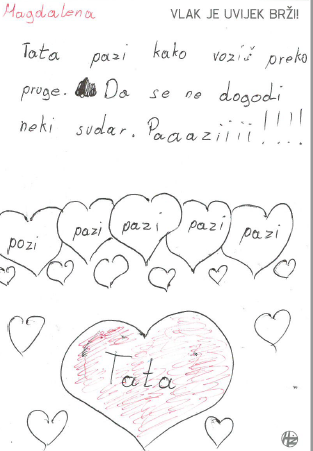 Magdalena
VLAK JE UVIJEK BRŽI!
Tata pazi kako voziš preko
pruge. Da se ne dogodi
neki sudar. Paaaziiii!!!!
pazi pazi pazi pazi pazi
Tata
HŽ